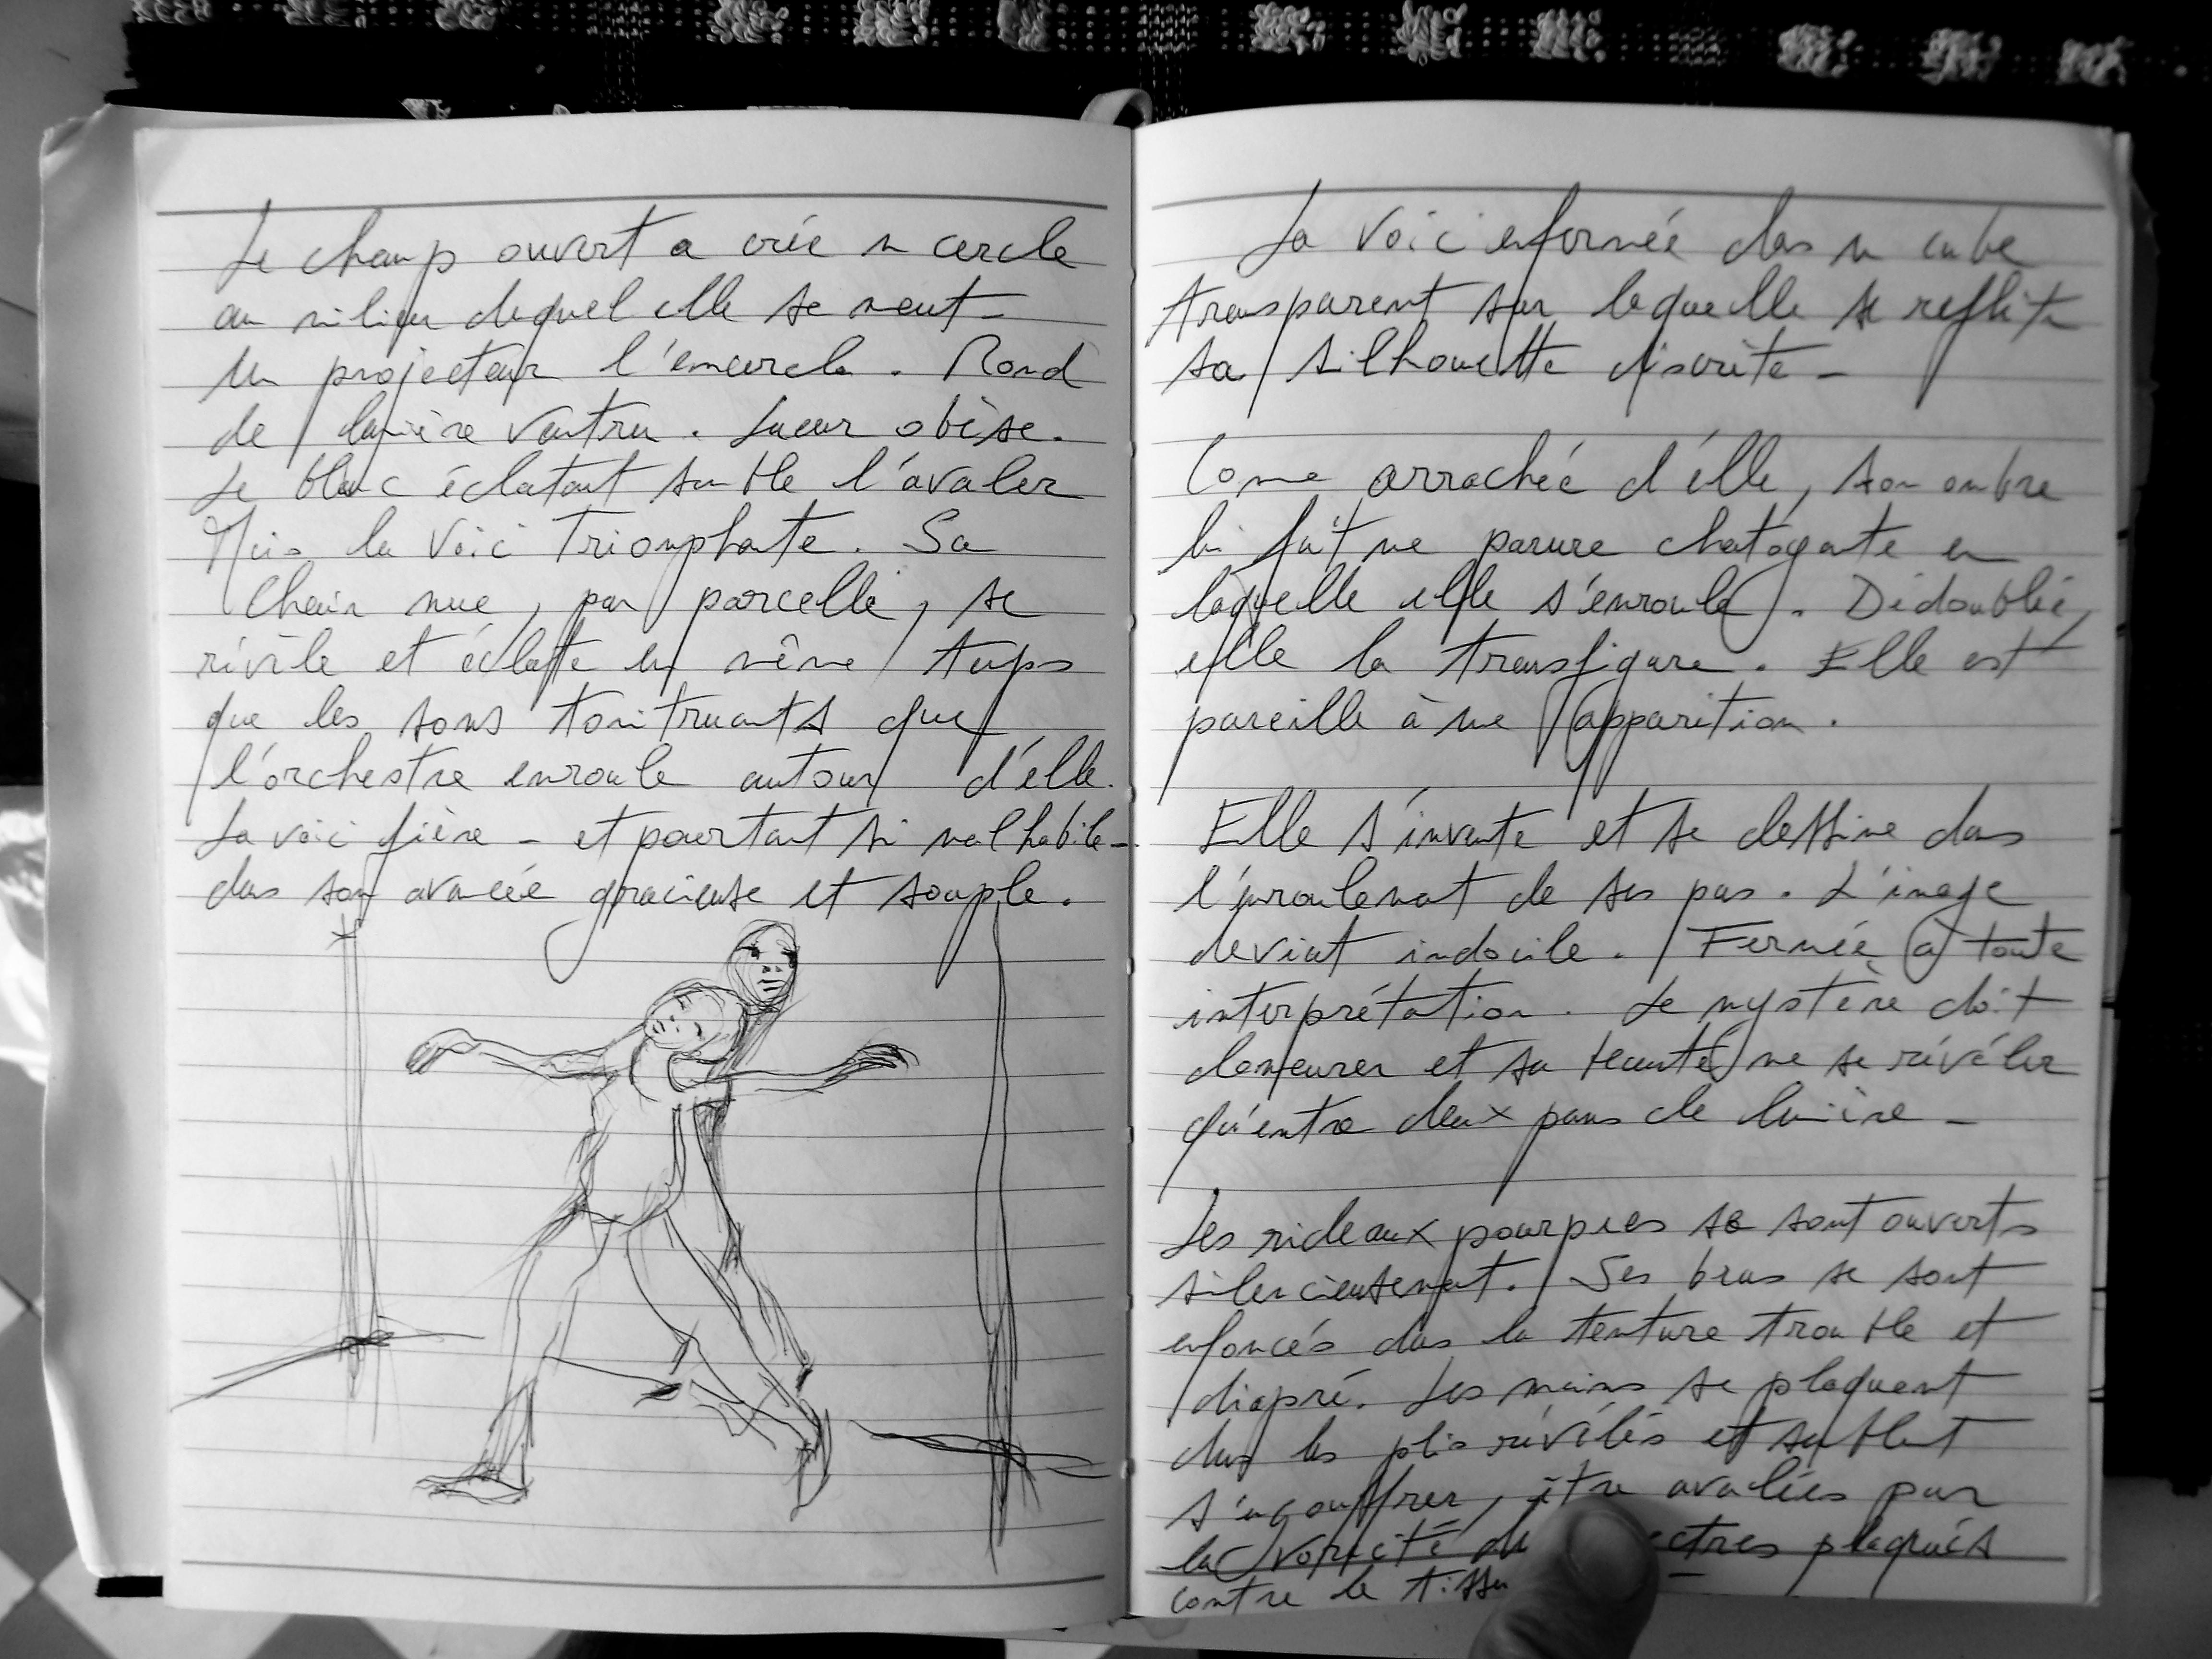 Le champ ouvert a crée un cercle
au milieu duquel elle se meut -
Un projecteur l'encercle. Rond
de lumière ventru. Lueur obèse.
Le blanc éclatant semble l'avaler
Mais la voici triomphante. Sa
chair nue, par parcelle, se
révèle et éclate en même temps
que les sons tonitruants que
l'orchestre enroule autour d'elle.
La voici fière - et pourtant si malhabile -
dans son avancée gracieuse et souple.
La voici enfermée dans un cube
transparent sur laquelle se reflète
sa silhouette discrète -
Comme arrachée d'elle, son ombre
lui fait une parure chatoyante en
laquelle elle s'enroule. Dédoublée,
elle la transfigure. Elle est
pareille à une apparition.
Elle s'invente et se dessine dans
l'enroulement de ses pas. L'image
devient indocile. Fermée à toute
interprétation. Le mystère doit
demeurer et sa beauté ne se révéler
qu'entre deux pans de lumière -
Les rideaux pourpres se sont ouverts
silencieusement. Ses bras se sont
enfoncés dans la tenture trouble et
diapré. Les mains se plaquent
dans les plis révélés et semblent
s'engouffrer, être avalées par
la voracité plaqués
contre le tissu